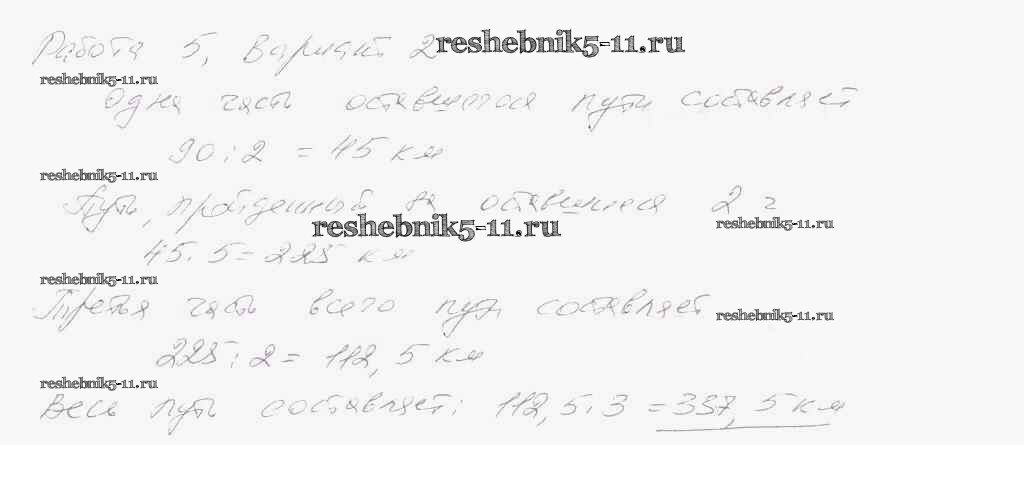 Работа 5, Вариант 2 reshebnik5-11.ru
reshebnik5-11.ru
Одна часть оставшегося пути составляет
90 : 2 = 45 км
reshebnik5-11.ru
Путь, пройденный за оставшиеся 2 ч
reshebnik5-11.ru
reshebnik5-11.ru
45 · 5 = 225 км
reshebnik5-11.ru
Третья часть всего пути составляет
reshebnik5-11.ru
225 : 2 = 112,5 км
reshebnik5-11.ru
Весь путь составляет: 112,5 · 3 = 337,5 км